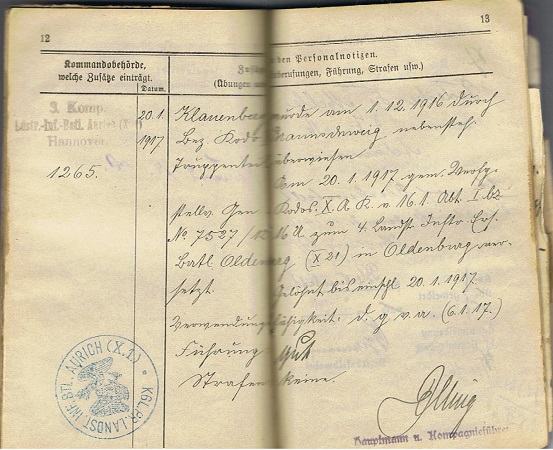 12
13
Kommandobehörde,
welche Zusätze einträgt.
Datum.
den Personalnotizen.
(Übungen berufungen, Führung, Strafen usw.)
3. Komp.
Landstr.-Inf.-Batl. Aurich (X
Hannover.
1265.
20.1.
1917
Klauenberg wurde am 1.12.1916 durch
Bez. Kdo Braunschweig nebensteh.
Truppenteil überwiesen
Am 20.1.1917 gem. Verfg.
stellv. Gen. Kdos. X. A. K. v. 16.1. Abt. I.b2
No 7527/ zum 4. Landst. Inftr. Ers.
Batl. Oldenburg (X 21) in Oldenburg ver-
setzt. Gelöhnt bis einschl. 20.1.1917.
Verwendungsfähigkeit: d. g. v. a. (6.1.17.)
Führung gut
Strafen keine.
KGL. PR. LANDST. INF. BTL. AURICH (X.1.)
Hauptmann u. Kompagnieführer